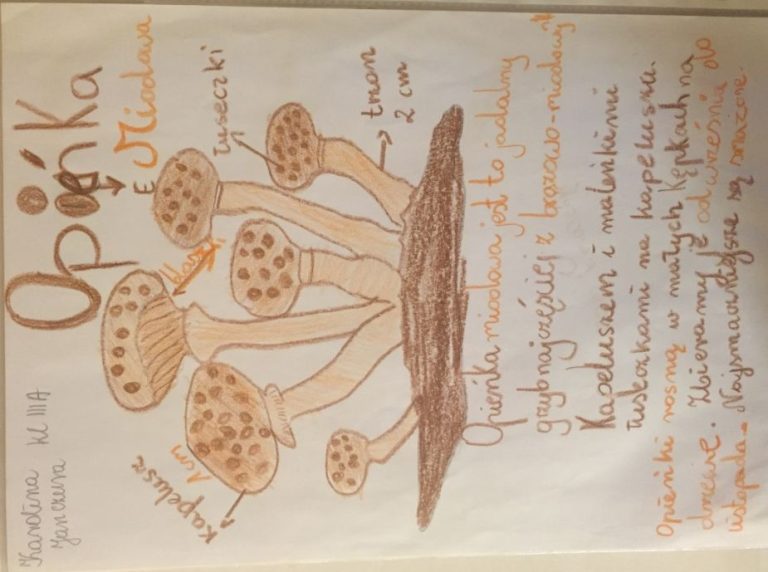 Karolina kl IIIA
Janczura
Opieńka
Miodawa
łuseczki
trzon
2 cm
kapelusz
Opieńka miodowa jest to jadalny
grzyb najczęściej z brązowo-miodowym
Kapeluszem i maleńkimi
łuseczkami na kapeluszu.
Opieńki rosną w małych kępkach na
drzewie. Zbieramy je od września do
listopada. Najsmaczniejsze są smażone.